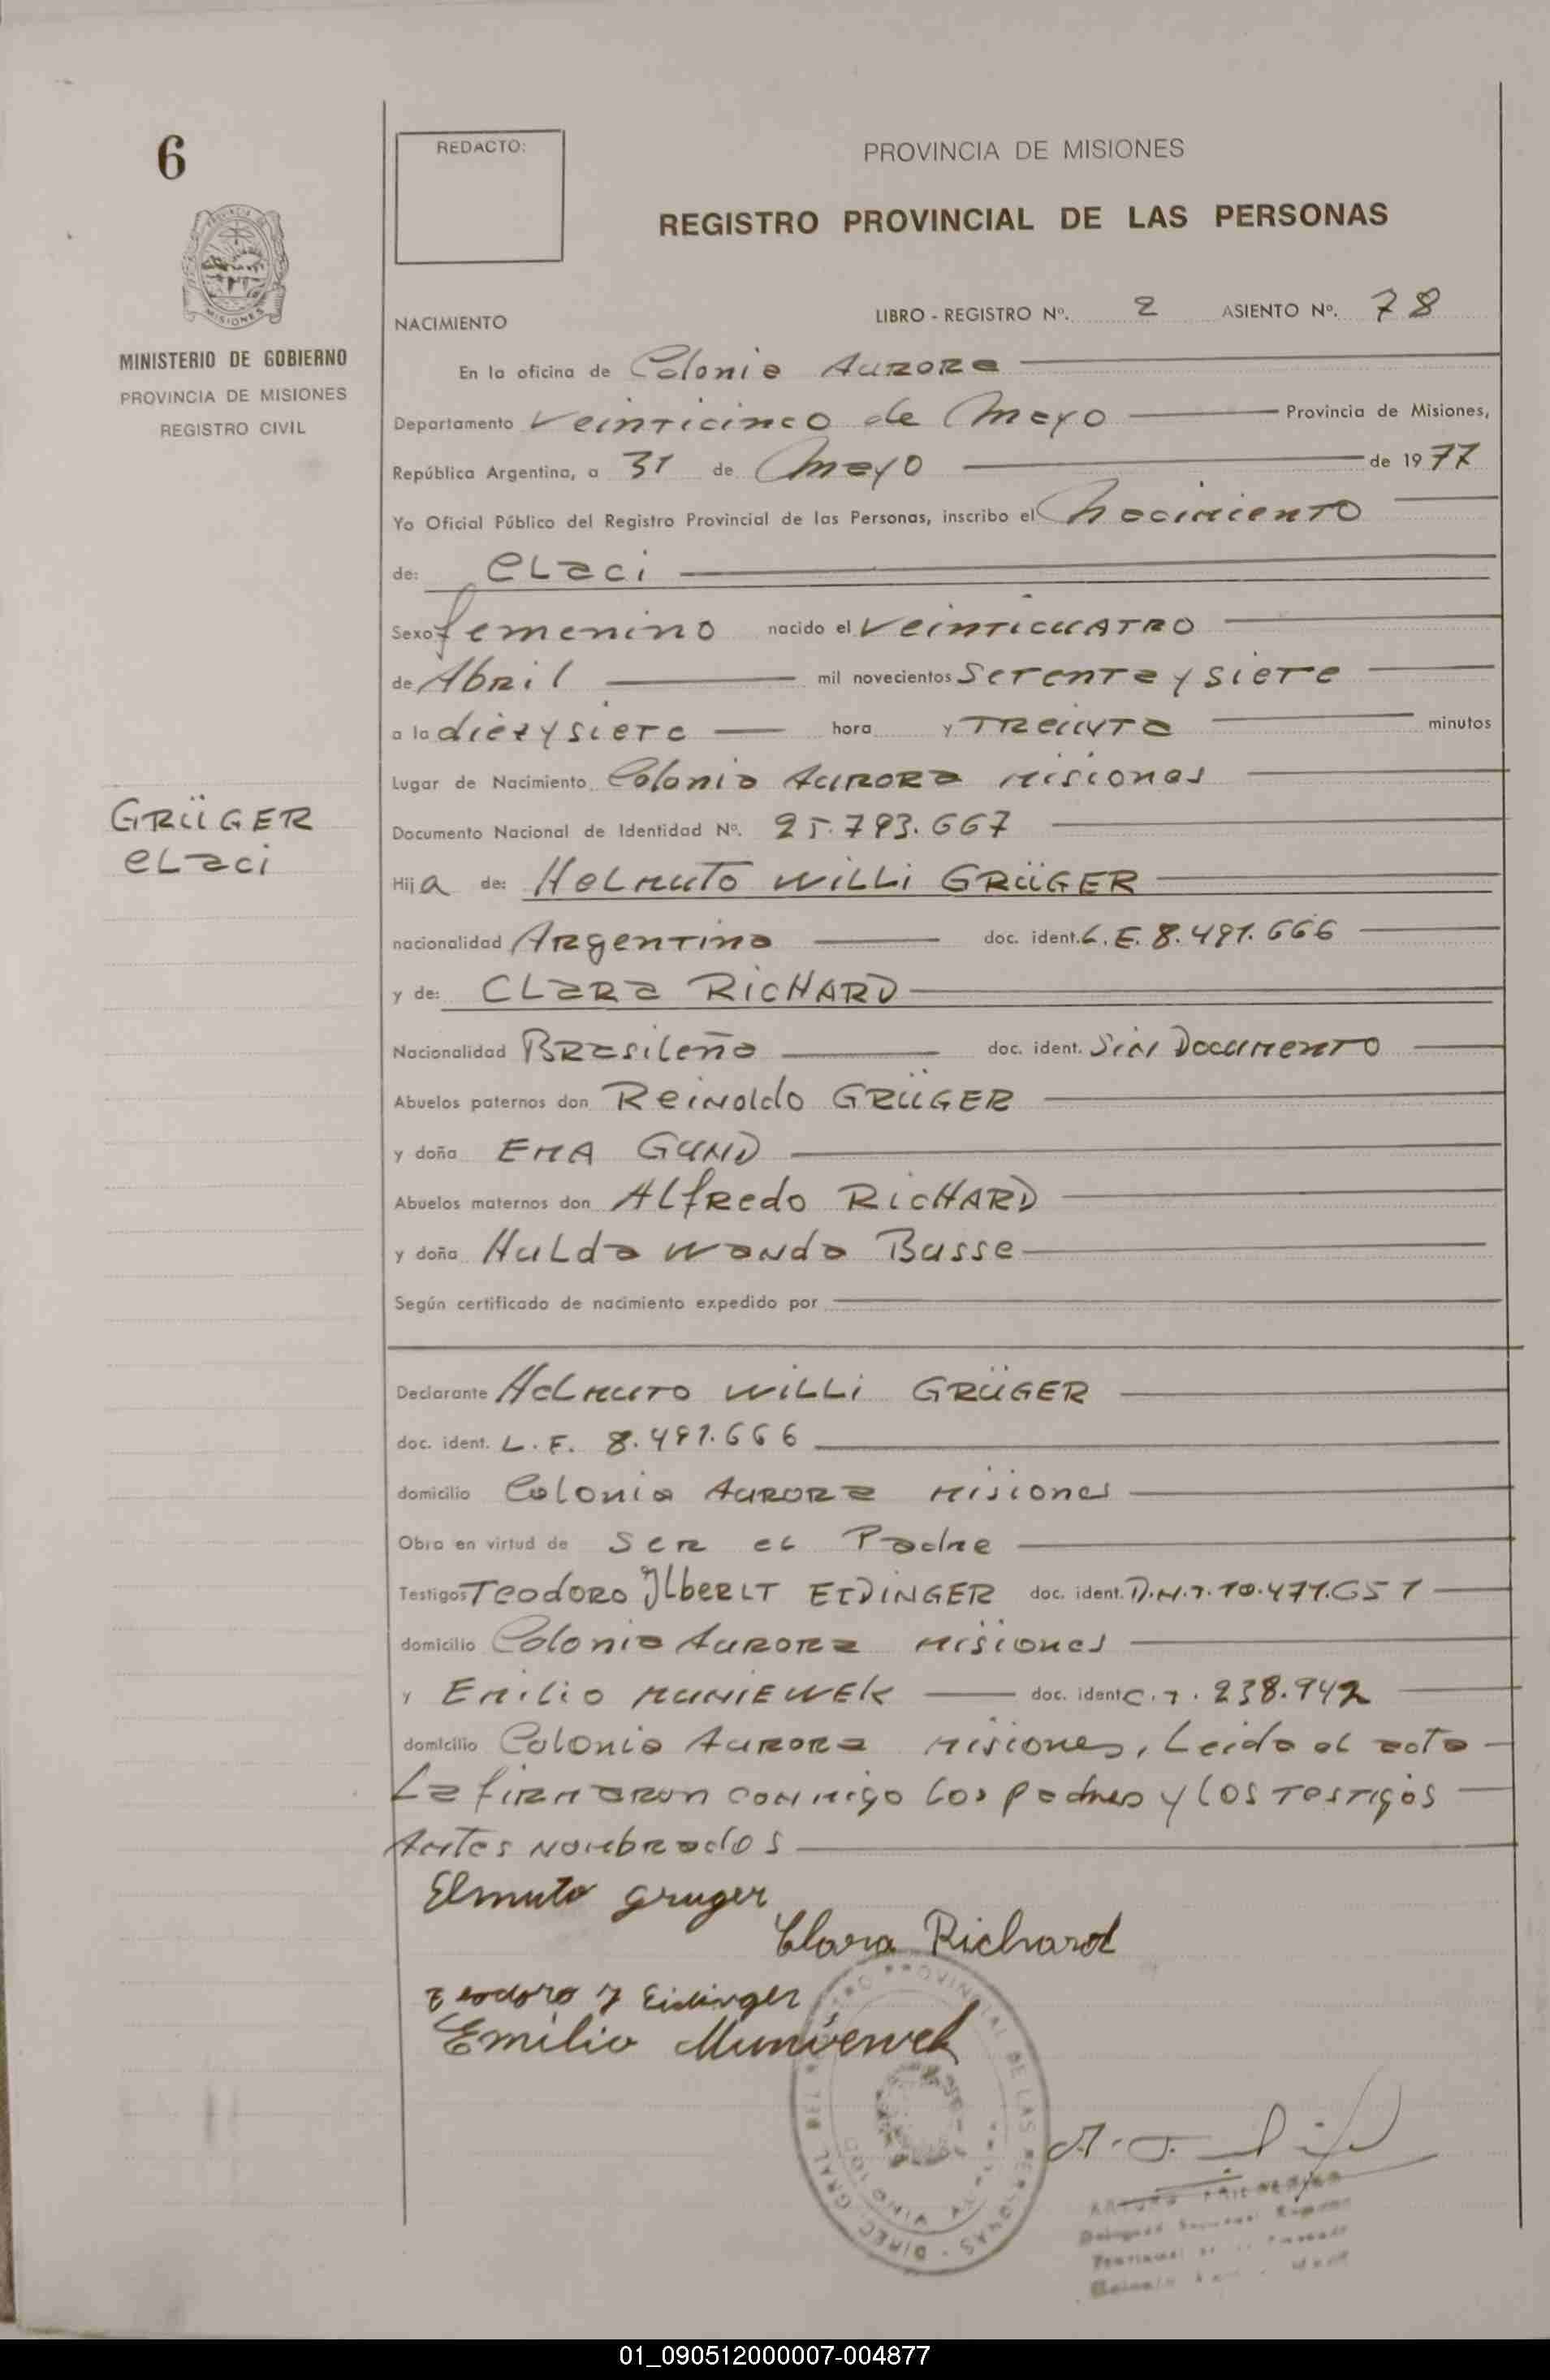 6
REDACTO:
PROVINCIA DE MISIONES
REGISTRO PROVINCIAL DE LAS PERSONAS
MISIONES
MINISTERIO DE GOBIERNO
PROVINCIA DE MISIONES
REGISTRO CIVIL
NACIMIENTO LIBRO - REGISTRO Nº. 2 ASIENTO Nº. 78
En la oficina de Colonia Aurora
Departamento Veinticinco de Mayo Provincia de Misiones,
República Argentina, a 31 de Mayo de 1977
Yo Oficial Público del Registro Provincial de las Personas, inscribo el Nacimiento
de: ELaci
Sexo femenino nacido el Veinticuatro
de Abril mil novecientos Setenta y siete
a la diez y siete hora y Treinta minutos
Lugar de Nacimiento Colonia Aurora Misiones
GRÜGER
ELaci
Documento Nacional de Identidad Nº. 25.793.667
Hija de: Helmuto Willi GRÜGER
nacionalidad Argentina doc. ident. L.E. 8.491.666
y de: Clara RICHARD
Nacionalidad Brasileña doc. ident. Sin Documento
Abuelos paternos don Reinoldo GRÜGER
y doña EMA GUND
Abuelos maternos don Alfredo RICHARD
y doña Hulda Wanda Busse
Según certificado de nacimiento expedido por
Declarante Helmuto Willi GRÜGER
doc. ident. L.E. 8.491.666
domicilio Colonia Aurora Misiones
Obra en virtud de Ser el Padre
Testigos Teodoro Ilberlt EIDINGER doc. ident. D.N.I. 10.471.651
domicilio Colonia Aurora Misiones
y Emilio MUNIEWEK doc. ident C.I. 238.942
domicilio Colonia Aurora Misiones, Leida el acta
La firmaron conmigo los padres y los Testigos
Antes nombrados
Elmuto gruger
Clara Richard
Teodoro I Eidinger
Emilio Muniewek
PROVINCIAL DE LAS PERSONAS - DIREC. GRAL. DEL
01_090512000007-004877